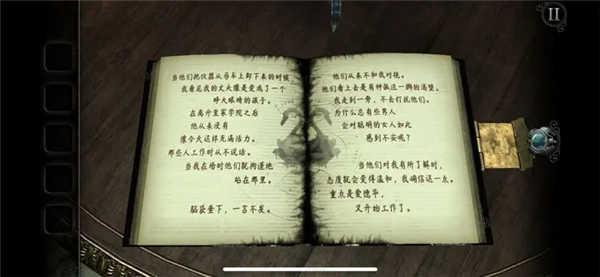 当他们把仪器从马车上卸下来的时候
我看见我的丈夫像是变成了一个
睁大眼睛的孩子。
在离开皇家学院之后
他从来没有
像今天这样充满活力。
那些人工作时从不说话。
当我在场时他们就拘谨地
站在那里。
脑袋垂下，一言不发。
他们从来不和我对视。
他们看上去是有种躲进一脚的渴望。
我走到一旁，不去打扰他们。
为什么总有些男人
会对聪明的女人如此
感到不安呢？
当他们对我有所了解时，
态度就会变得温和，我确信这一点。
重点是爱德华，
又开始工作了。